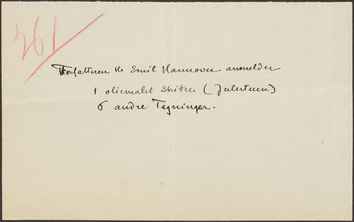 261
Forfatteren Hr Emil Hannover anmelder
1 oliemalet Skitse (Juletræer)
6 andre Tegninger.